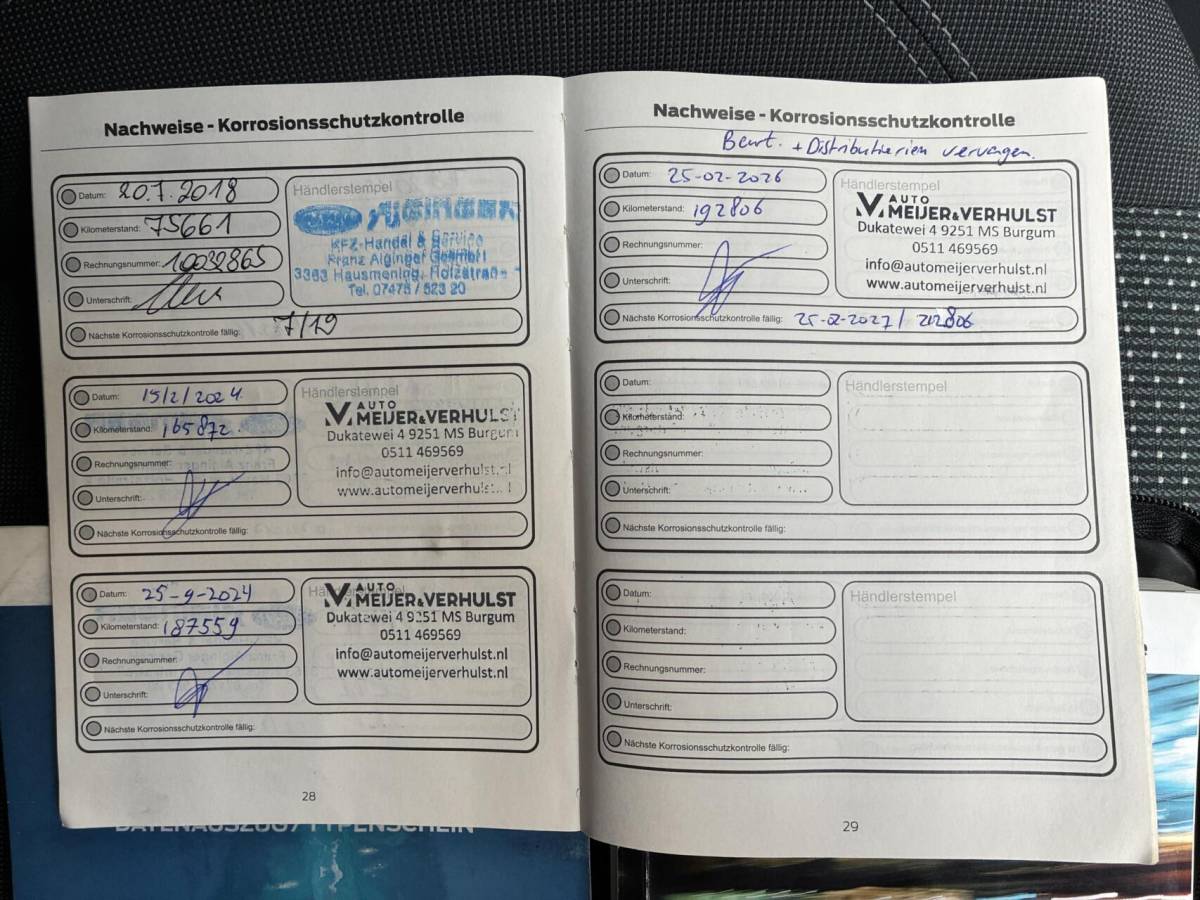 Nachweise - Korrosionsschutzkontrolle
Datum: 20.7.2018
Kilometerstand: 75661
Rechnungsnummer: 10032865
Unterschrift:
Nächste Korrosionsschutzkontrolle fällig: 7/19
Händlerstempel
AIGINGER
KFZ-Handel & Service
Franz Aiginger GesmbH
3363 Hausmening,
Tel. 07475 / 523 20
Datum: 15/2/2024
Kilometerstand: 165872
Rechnungsnummer:
Unterschrift:
Nächste Korrosionsschutzkontrolle fällig:
Händlerstempel
AUTO
MEIJER&VERHULST
Dukatewei 4 9251 MS Burgum
0511 469569
info@automeijerverhulst.nl
www.automeijerverhulst.nl
Datum: 25-9-2024
Kilometerstand: 187559
Rechnungsnummer:
Unterschrift:
Nächste Korrosionsschutzkontrolle fällig:
AUTO
MEIJER&VERHULST
Dukatewei 4 9251 MS Burgum
0511 469569
info@automeijerverhulst.nl
www.automeijerverhulst.nl
28
Nachweise - Korrosionsschutzkontrolle
Beurt. + Distributieriem vervangen.
Datum: 25-02-2026
Kilometerstand: 192806
Rechnungsnummer:
Unterschrift:
Nächste Korrosionsschutzkontrolle fällig: 25-02-2027 / 212806
Händlerstempel
AUTO
MEIJER&VERHULST
Dukatewei 4 9251 MS Burgum
0511 469569
info@automeijerverhulst.nl
www.automeijerverhulst.nl
Datum:
Kilometerstand:
Rechnungsnummer:
Unterschrift:
Nächste Korrosionsschutzkontrolle fällig:
Händlerstempel
Datum:
Kilometerstand:
Rechnungsnummer:
Unterschrift:
Nächste Korrosionsschutzkontrolle fällig:
Händlerstempel
29
DATENAUSZUG / TYPENSCHEIN